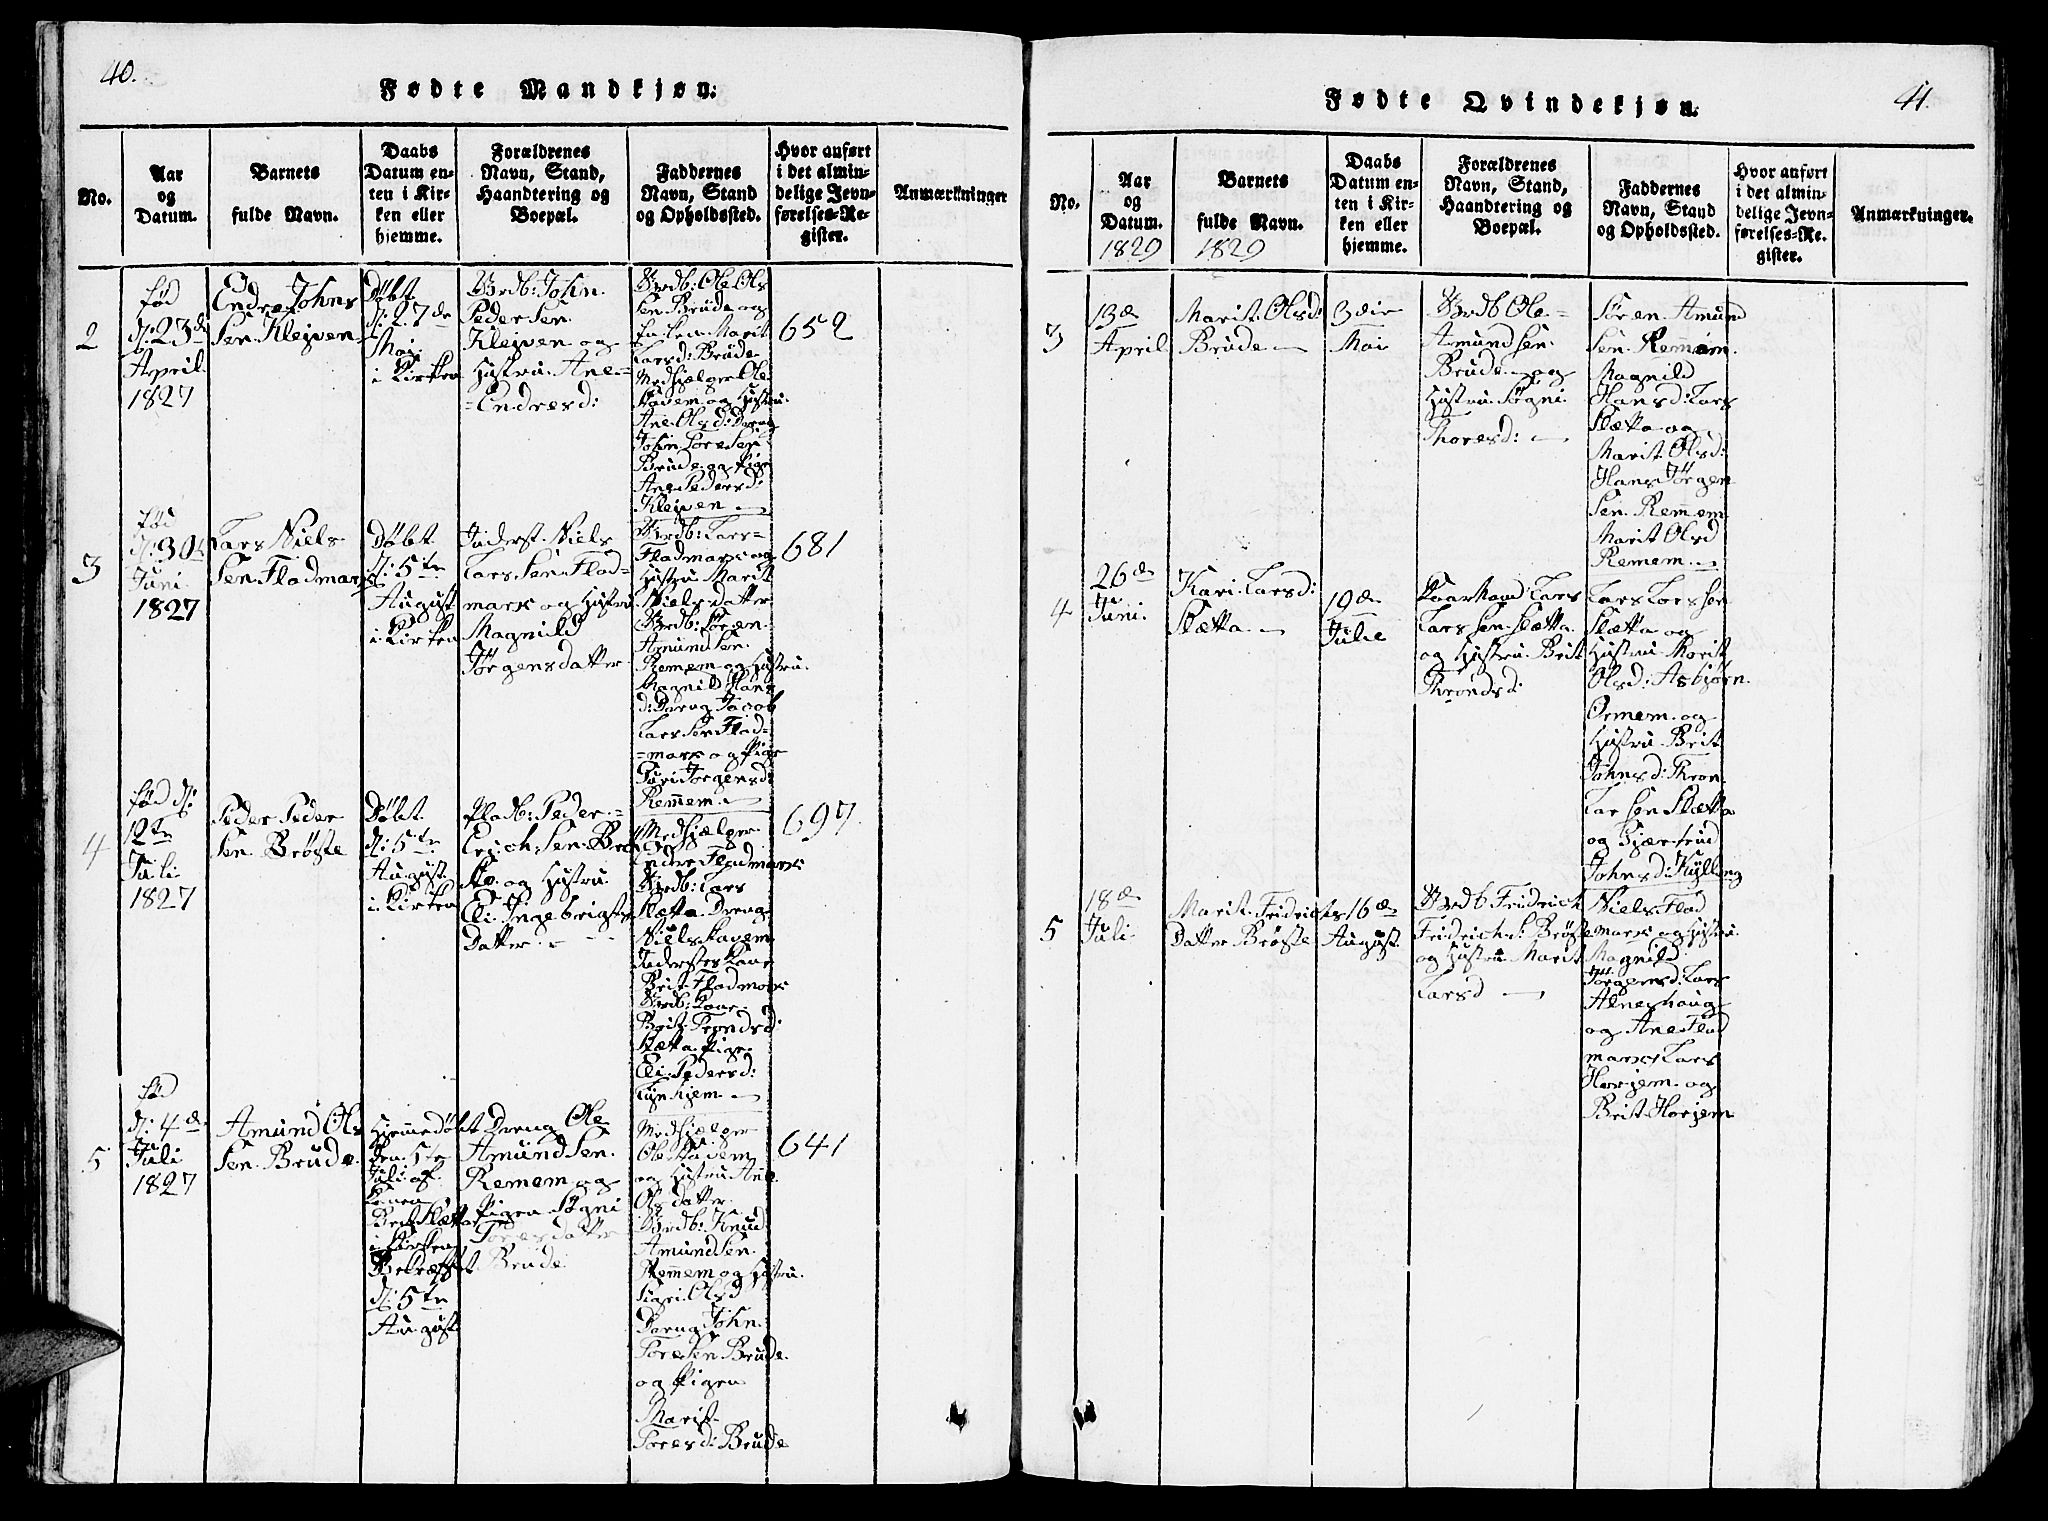 40.
Fødte Mandkjøn.
No.
Aar
og
Datum.
Barnets
fulde Navn.
Daabs
Datum en-
ten i Kir-
ken eller
hjemme.
Forældrenes
Navn, Stand,
Haandtering og
Boepæl.
Faddernes
Navn, Stand
og Opholdssted.
Hvor anført
i det almin-
delige Jevn-
førelses-Re-
gister.
Anmærkninger
2
fød
d: 23de
April
1827
Endre Johns
Sen Klejven
Døbt
d: 27de
Mai
i Kirken
Grdb: John
Peder Sen
Klejven og
Hustru Ane
Endresd:
Grdb: Ole Ols
Sen Brude og
Marit
Larsd: Brude
Medhjælger Ole
Stavem og Hustru
Ane Olsd: Dreng
John Tore Sen
Brude og Pige
Ane Pedersd:
Klejven
652
3
fød
d: 30te
Juni
1827
Lars Niels
Sen Fladmark
Døbt
d: 5te
August
i Kirken
Inderst Niels
Lars Sen Flad-
mark og Hustru
Magnild
Jørgensdatter
Grdb: Lars
Fladmark og
Hustru Marit
Nielsdatter
Grdb: Søren
Amund Sen
Remem og Hustru
Magnild Hans
d: Dreng Jacob
Lars Sen Flad-
mark og Pige
Guri Jørgensd:
Remmem
681
4
fød d:
12te
Juli
1827
Peder Peder
Sen Brøste
Døbt
d: 5te
August
i Kirken
Pladb: Peder
Erich Sen Brø
ste og Hustru
Eli Ingebrigts
Datter
Medhjælger
Endre Fladmark
Grdb: Lars
Slætta Dreng
Niels Stavem
Inderstes Kone
Brit Fladmark
Grdb: Kone
Brit Trondsd
Slætta Pige
Eli Pedersd:
Lynhjem
697
5
fød
d: 4de
Juli
1827
Amund Ols
Sen Brude
Hjemmedøbt
den 5te
Juli af
Konen
Brit Slætta
i Kirken
Bekræftet
d: 5te
August
Dreng Ole
Amund Sen
Remem og
Pigen Søgni
Toresdatter
Brude
Medhjælger
Ole Stavem
og Hustru Ane
Ols datter
Grdb: Knud
Amund Sen
Remmem og Hustru
Sigri Olsd
Dreng John
Tore Sen Brude
og Pigen
Marit
Toresd: Brude
641
41.
Fødte Qvindekjøn.
No.
Aar
og
Datum.
1829
Barnets
fulde Navn.
1829
Daabs
Datum en-
ten i Kir-
ken eller
hjemme.
Forældrenes
Navn, Stand,
Haandtering og
Boepæl.
Faddernes
Navn, Stand
og Opholdssted.
Hvor anført
i det almin-
delige Jevn-
førelses-Re-
gister.
Anmærkninger.
3
13de
April
Marit Olsd:
Brude
3die
Mai
Grdb Ole
Amund Sen
Brude og
Hustru Søgni
Thoresd:
Søren Amund
Sen Remmem
Magnild
Hansd: Lars
Slætta og
Marit Olsd:
Hans Jørgen
Sen Remem
Marit Olsd
Remem
4
26de
Juni
Kari Larsd:
Slætta
19de
Julie
Gaarmand Lars
Lars Sen Slætta
og Hustru Brit
Throndsd:
Lars Lars Sen
Slætta og
Hustru Marit
Olsd: Asbjørn
Ormem og
Hustru Brit
Johnsd: Thron
Lar Sen Slætta
og Gjærtrud
Johnsd: Kylling
5
18de
Juli
Marit Fridrichs
Datter Brøste
16de
August
Grdb Fridrich
Fridrich S: Brøste
og Hustru Marit
Larsd
Niels Flad
mark og Hustru
Magnild
Jørgensd: Lars
Alneshaug
og Ane Flad
mark Lars
Horjem og
Brit Horjem